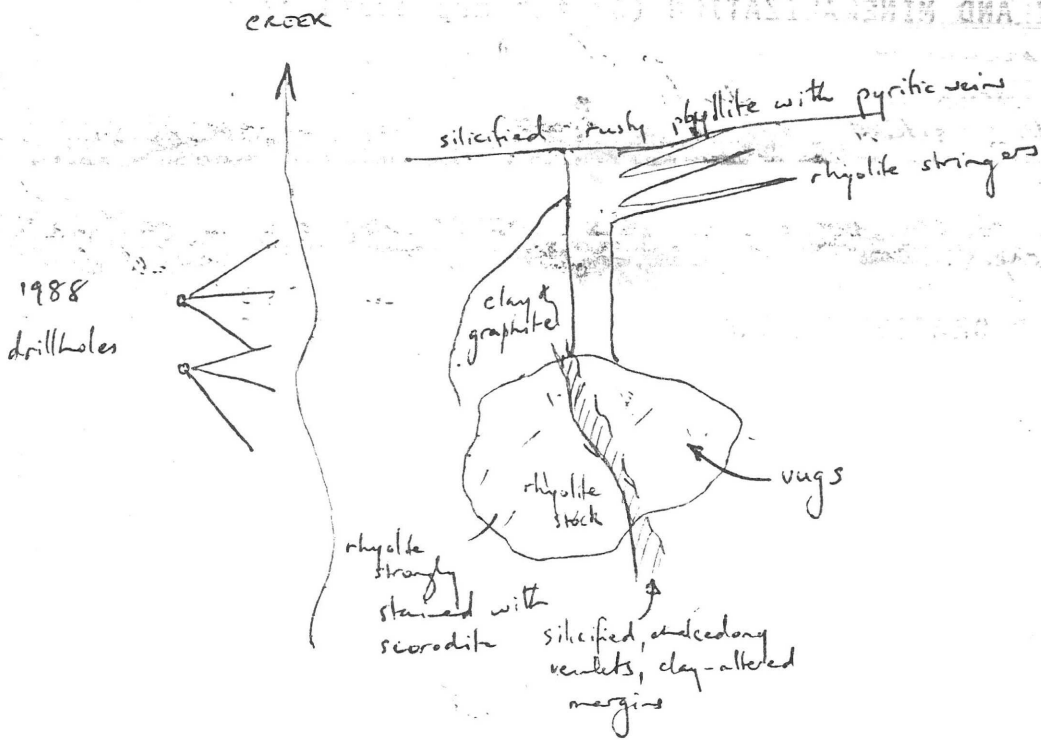 CREEK
silicified rusty phyllite with pyritic veins
rhyolite stringers
1988
drillholes
clay &
graphite
vugs
rhyolite
stock
rhyolite
strongly
stained with
scorodite
silicified, chalcedony
veinlets, clay-altered
margins